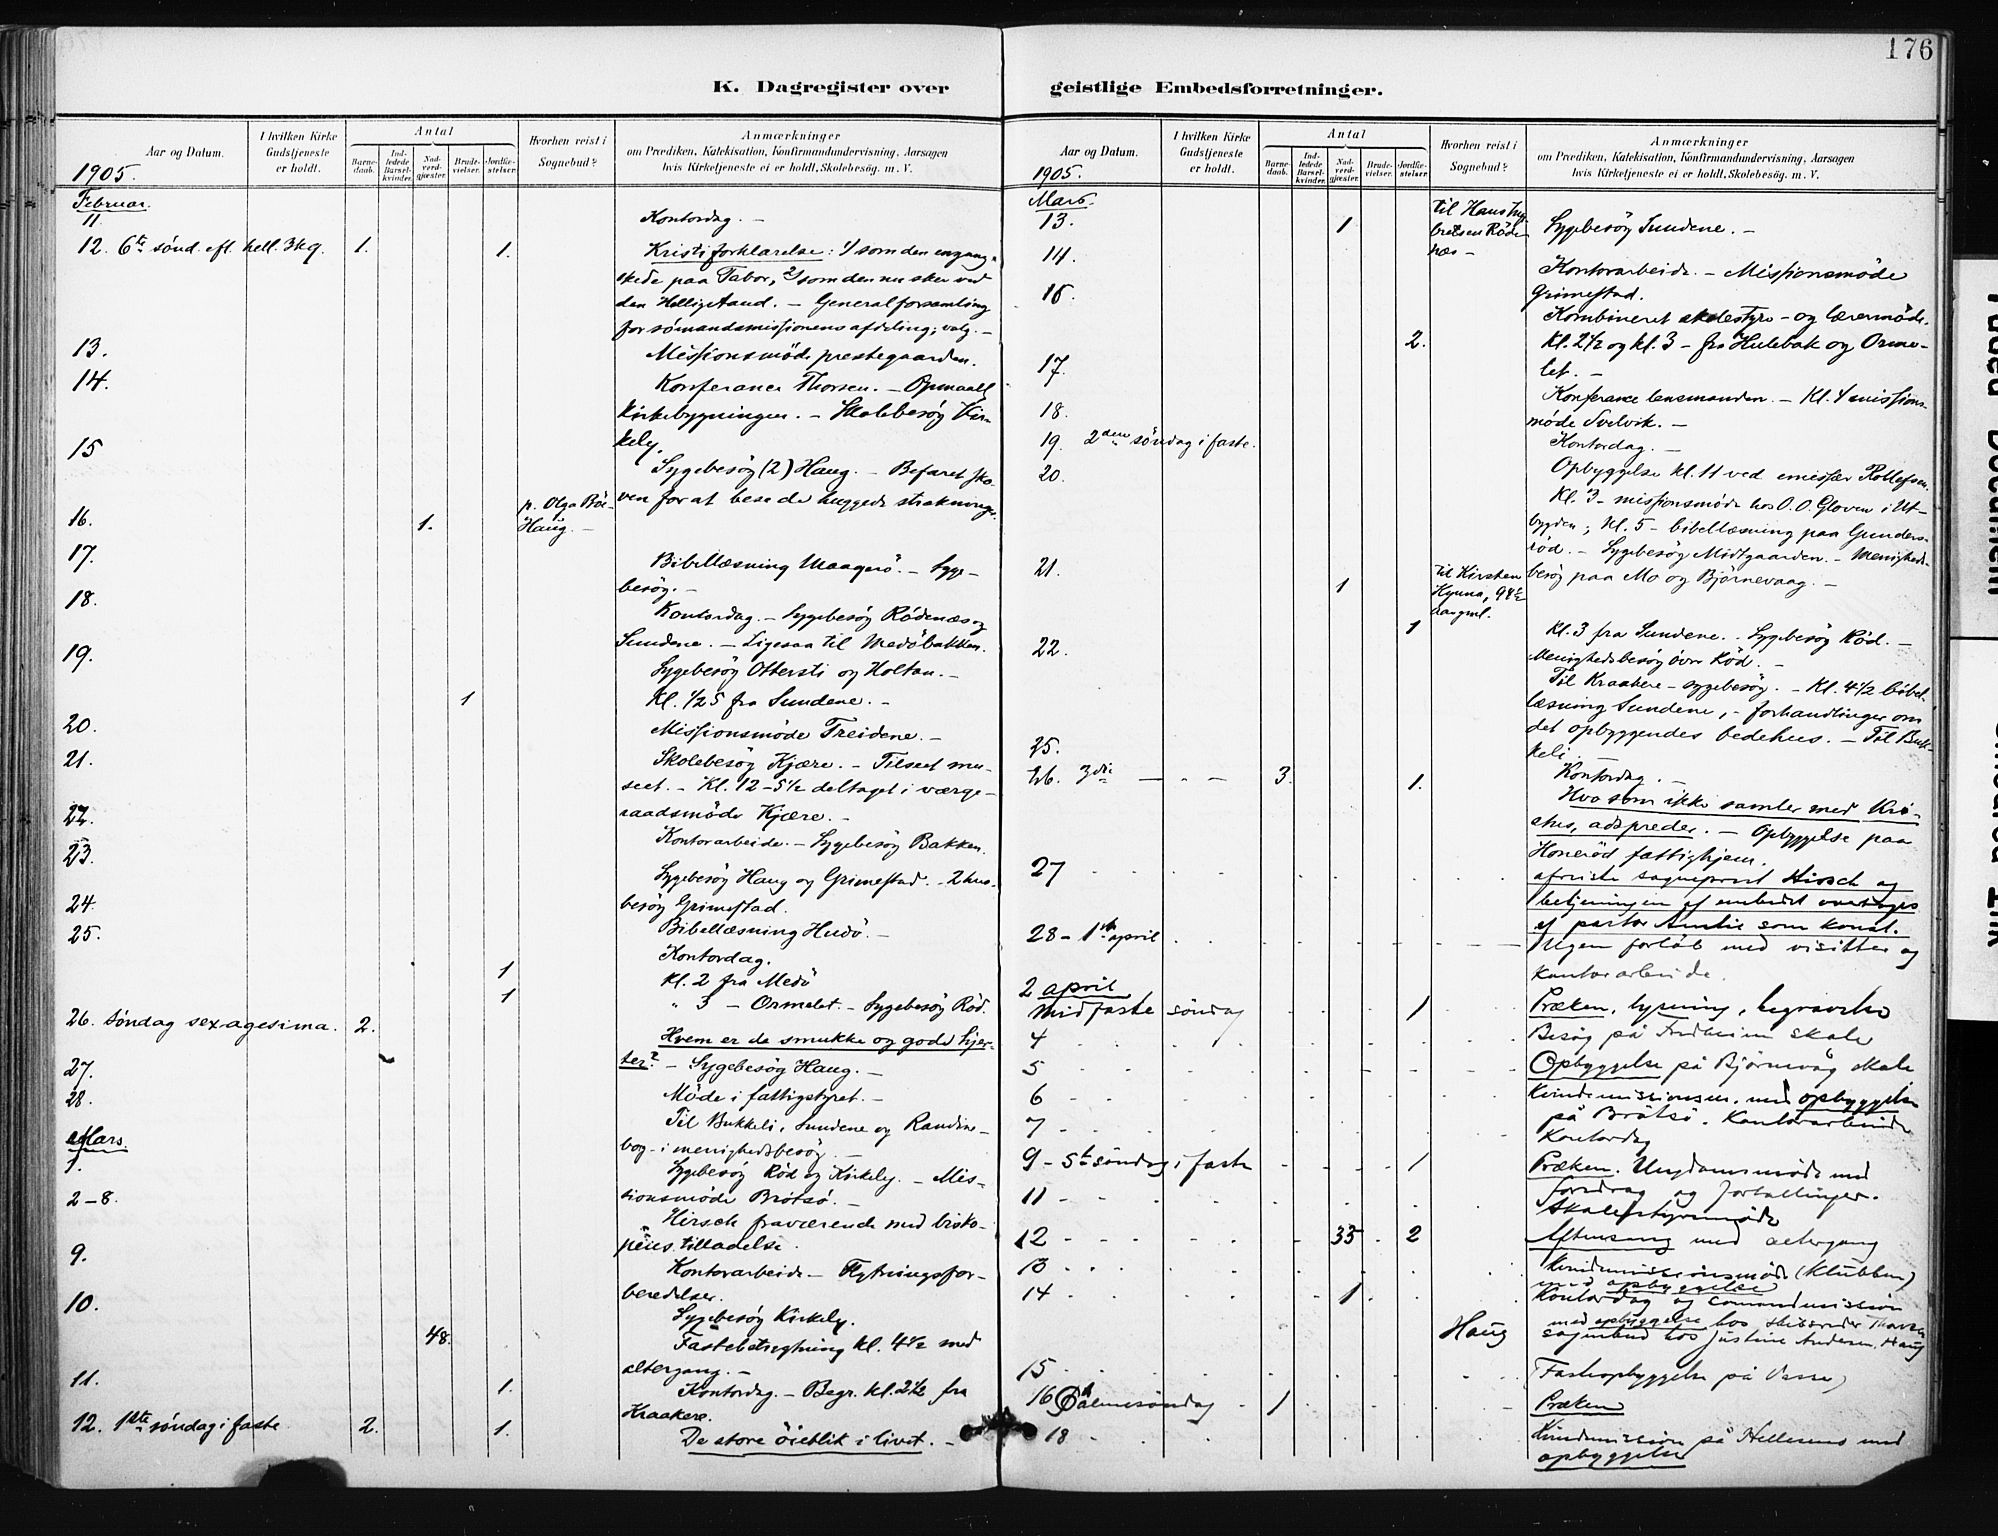 176
K. Dagregister over
Aar og Datum.
I hvilken Kirke Gudstjeneste er holdt.
Antal
Barnedaab.
Indledede Barselkvinder.
Nadverdgjæster.
Brudevielser.
Jordfæstelser.
Hvorhen reist i Sognebud?
Anmærkninger
om Prædiken, Katekisation, Konfirmandundervisning, Aarsagen
hvis Kirketjeneste ei er holdt, Skolebesøg. m. V.
1905.
Februar.
11. Kontordag. –
12. 6te sønd. eft. hell. 3kg. 1. 1. Kristi forklarelse: 1/ som den engang
skede paa Tabor, 2/ som den nu sker ved
den Helligaand. – Generalforsamling
for sømandsmissionens afdeling; valg. –
13. Missionsmöde prestegaarden.
14. Konferance Thorsen. – Opmaalt
kirkebygningen. – Skolebesøg Kir-
kely.
15 Sygebesøg (2) Haug. – Befaret sko-
ven for at bese de huggede strækninger.
16. 1. p. Olga Böe
Haug. –
17. Bibellæsning Maagerö. – Syge-
besøg. –
18. Kontordag. – Sygebesøg Rödenæs og
Sundene. – Ligesaa til Medöbakken.
19. Sygebesøg Ottersti og Holtan. –
1 Kl. 1/2 5 fra Sundene. –
20. Missionsmöde Treidene. –
21. Skolebesøg Kjære. – Tilseet mu-
seet. – Kl. 12 – 5 1/2 deltaget i værge-
raadsmöde Kjære. –
22. Kontorarbeide. – Sygebesøg Bakken.
23. Sygebesøg Haug og Grimestad. – 2 hus-
besøg Grimestad.
24. Bibellæsning Hudö. –
25. Kontordag.
1 Kl. 2 fra Medö
1 " 3 – Ormelet. – Sygebesøg Röd.
26. Søndag sexagesima. 2. Hvem er de smukke og gode hjer-
ter? – Sygebesøg Haug. –
27. Möde i fattigstyret. –
28. Til Bukkeli, Sundene og Randine-
bog – i menighedsbesøg. –
Mars.
1. Sygebesøg Röd og Kirkely. – Mis-
sionsmöde Brötsö. –
2–8. Hirsch fraværende med bisko-
pens tilladelse.
9. Kontorarbeide – Flytningsfor-
beredelser.
10. Sygebesøg Kirkely.
48. Fastebetragtning kl. 4 1/2 med
altergang. –
11. 1. Kontordag. – Begr. kl. 2 1/2 fra
Kraakere.
12. 1ste søndag i faste 2. 1. De store öieblik i livet. –
geistlige Embedsforretninger.
Aar og Datum.
I hvilken Kirke Gudstjeneste er holdt.
Antal
Barnedaab.
Indledede Barselkvinder.
Nadverdgjæster.
Brudevielser.
Jordfæstelser.
Hvorhen reist i Sognebud?
Anmærkninger
om Prædiken, Katekisation, Konfirmandundervisning, Aarsagen
hvis Kirketjeneste ei er holdt, Skolebesøg. m. V.
1905.
Mars.
13. 1 til Hans
Röde-
næs – Sygebesøg Sundene. –
14. Kontorarbeide. – Missionsmöde
Grimestad.
16. Kombineret skolestyre – og lærermöde.
2. Kl. 2 1/2 og kl. 3 – fra Hulebak og Orme-
let. –
17. Konferance lensmanden. – Kl. 4 missions-
möde Svelvik. –
18. Kontordag. –
19. 2den søndag i faste. Opbyggelse kl. 11 ved emissær Rollefsen.
Kl. 3 – missionsmöde hos O. O. Gloven i Ut-
bygden; kl. 5 – bibellæsning paa Gunders-
röd. – Sygebesøg Midtgaarden. – Menigheds-
besøg paa Mo og Björnevaag. –
20.
21. 1 til Kirsten
Hynna, 94 1/2
aar gml.
1 Kl. 3 fra Sundene. – Sygebesøg Röd. –
Menighedsbesøg övre Röd. –
22. Til Kraakere – sygebesøg. – Kl. 4 1/2 bibel-
læsning Sundene, – forhandlinger om
det opbyggendes bedehus. – Til Buk-
keli. –
25. Kontordag. –
26. 3die – " – 3. 1. Hvo som ikke samler med Kri-
stus, adspreder. – Opbyggelse paa
Honeröd fattighjem.
27 afreiste sogneprest Hirsch og
betjeningen af embedet overtoges
af pastor Amlie som konst.
28 – 1ste april Ugen forløb med visitter og
kontorarbeide.
2 april
Midfaste søndag 1 Præken, lysning, begravelse
4 Besøg på Fredheim skole
5 Opbyggelse på Bjørnevåg skole
6 Kvindemissionen, med opbyggelse
på Brötsö. Kontorarbeide
7 Kontordag
9 – 5te søndag i faste 1 Præken. Ungdomsmöde med
foredrag og fortællinger.
11 Skolestyremöde
12 35 2 Aftensang med altergang
13 Kvindemissionsmöde (Klubben)
med opbyggelse
14 1 Kontordag og sömandsmission
med opbyggelse hos
Haug sognebud hos Justine Andersen, Haug
15 (Fasteopbyggelse på Vasser)
16 Palmesøndag 1 Præken
18 Kvindemission på Hellesens med
opbyggelse